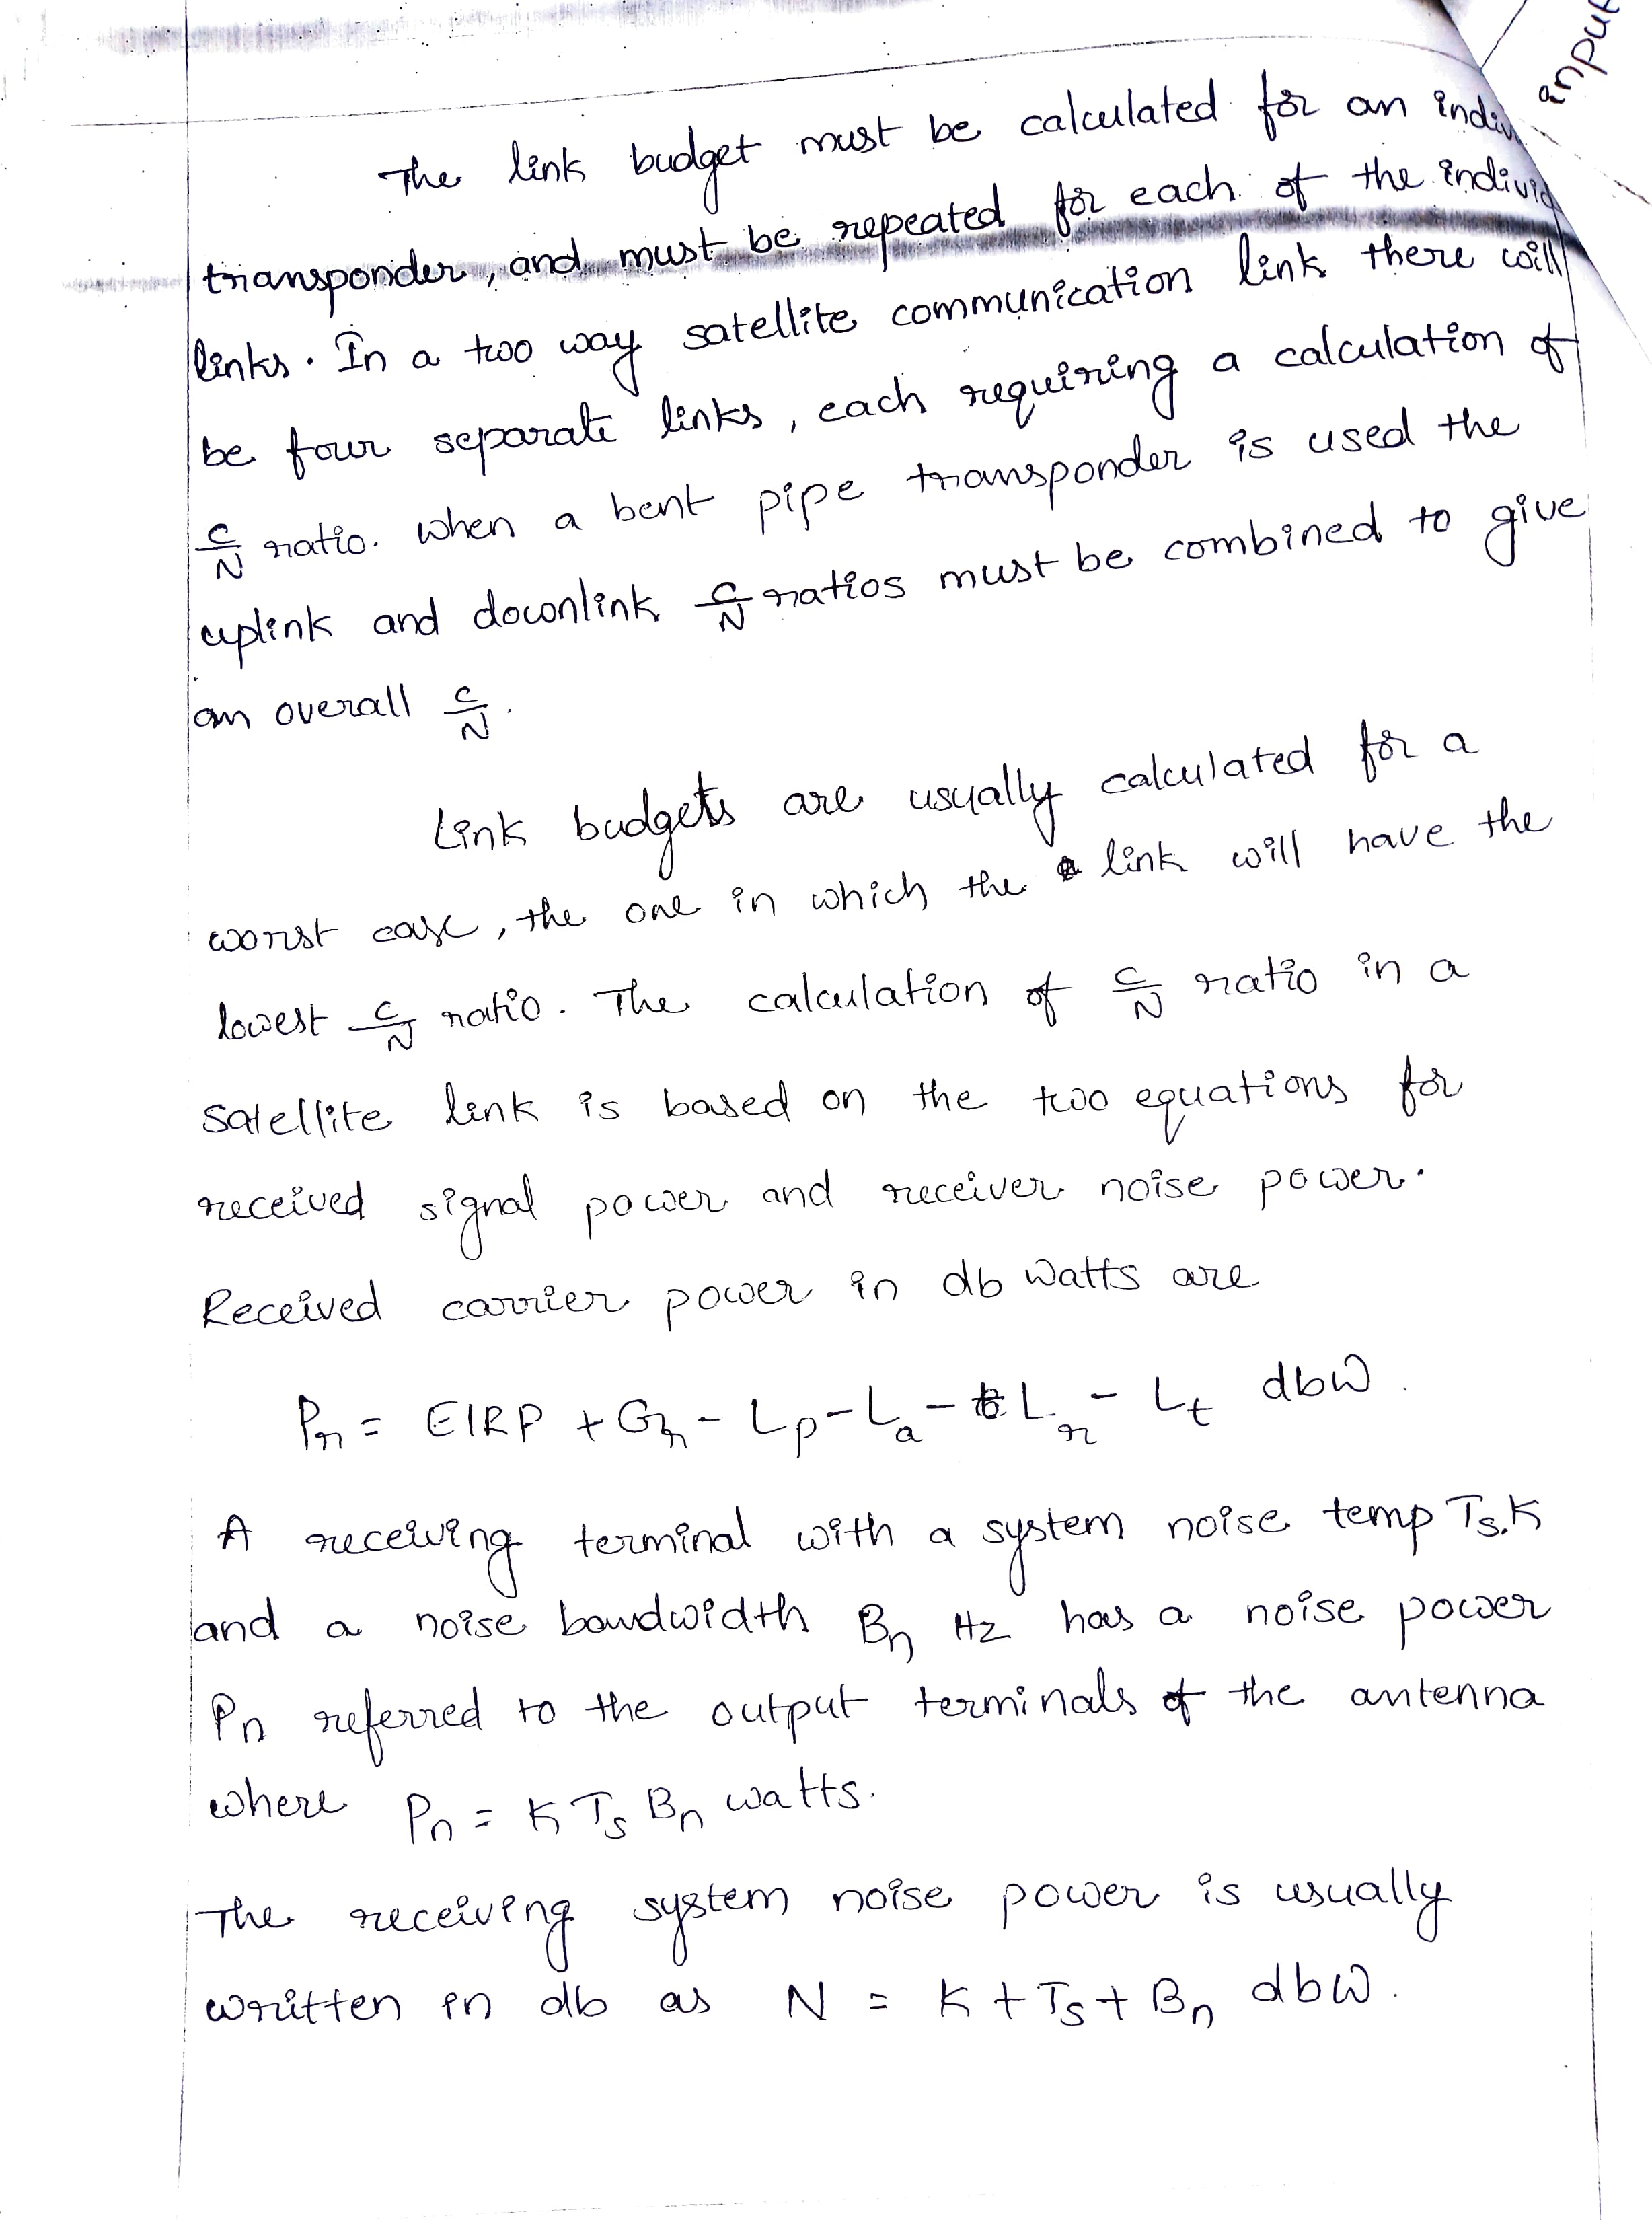 input
The link budget must be calculated for an indiv
transponder, and must be repeated for each of the individ
links. In a two way satellite communication link there will
be four separate links, each requiring a calculation of
C/N ratio. When a bent pipe transponder is used the
uplink and downlink C/N ratios must be combined to give
an overall C/N.
Link budgets are usually calculated for a
worst case, the one in which the link will have the
lowest C/N ratio. The calculation of C/N ratio in a
satellite link is based on the two equations for
received signal power and receiver noise power.
Received carrier power in db watts are
Pr = EIRP + Gr - Lp - La - Lr - Lt dbW.
A receiving terminal with a system noise temp Ts.K
and a noise bandwidth Bn Hz has a noise power
Pn referred to the output terminals of the antenna
where Pn = K Ts Bn watts.
The receiving system noise power is usually
written in db as N = K + Ts + Bn dbW.